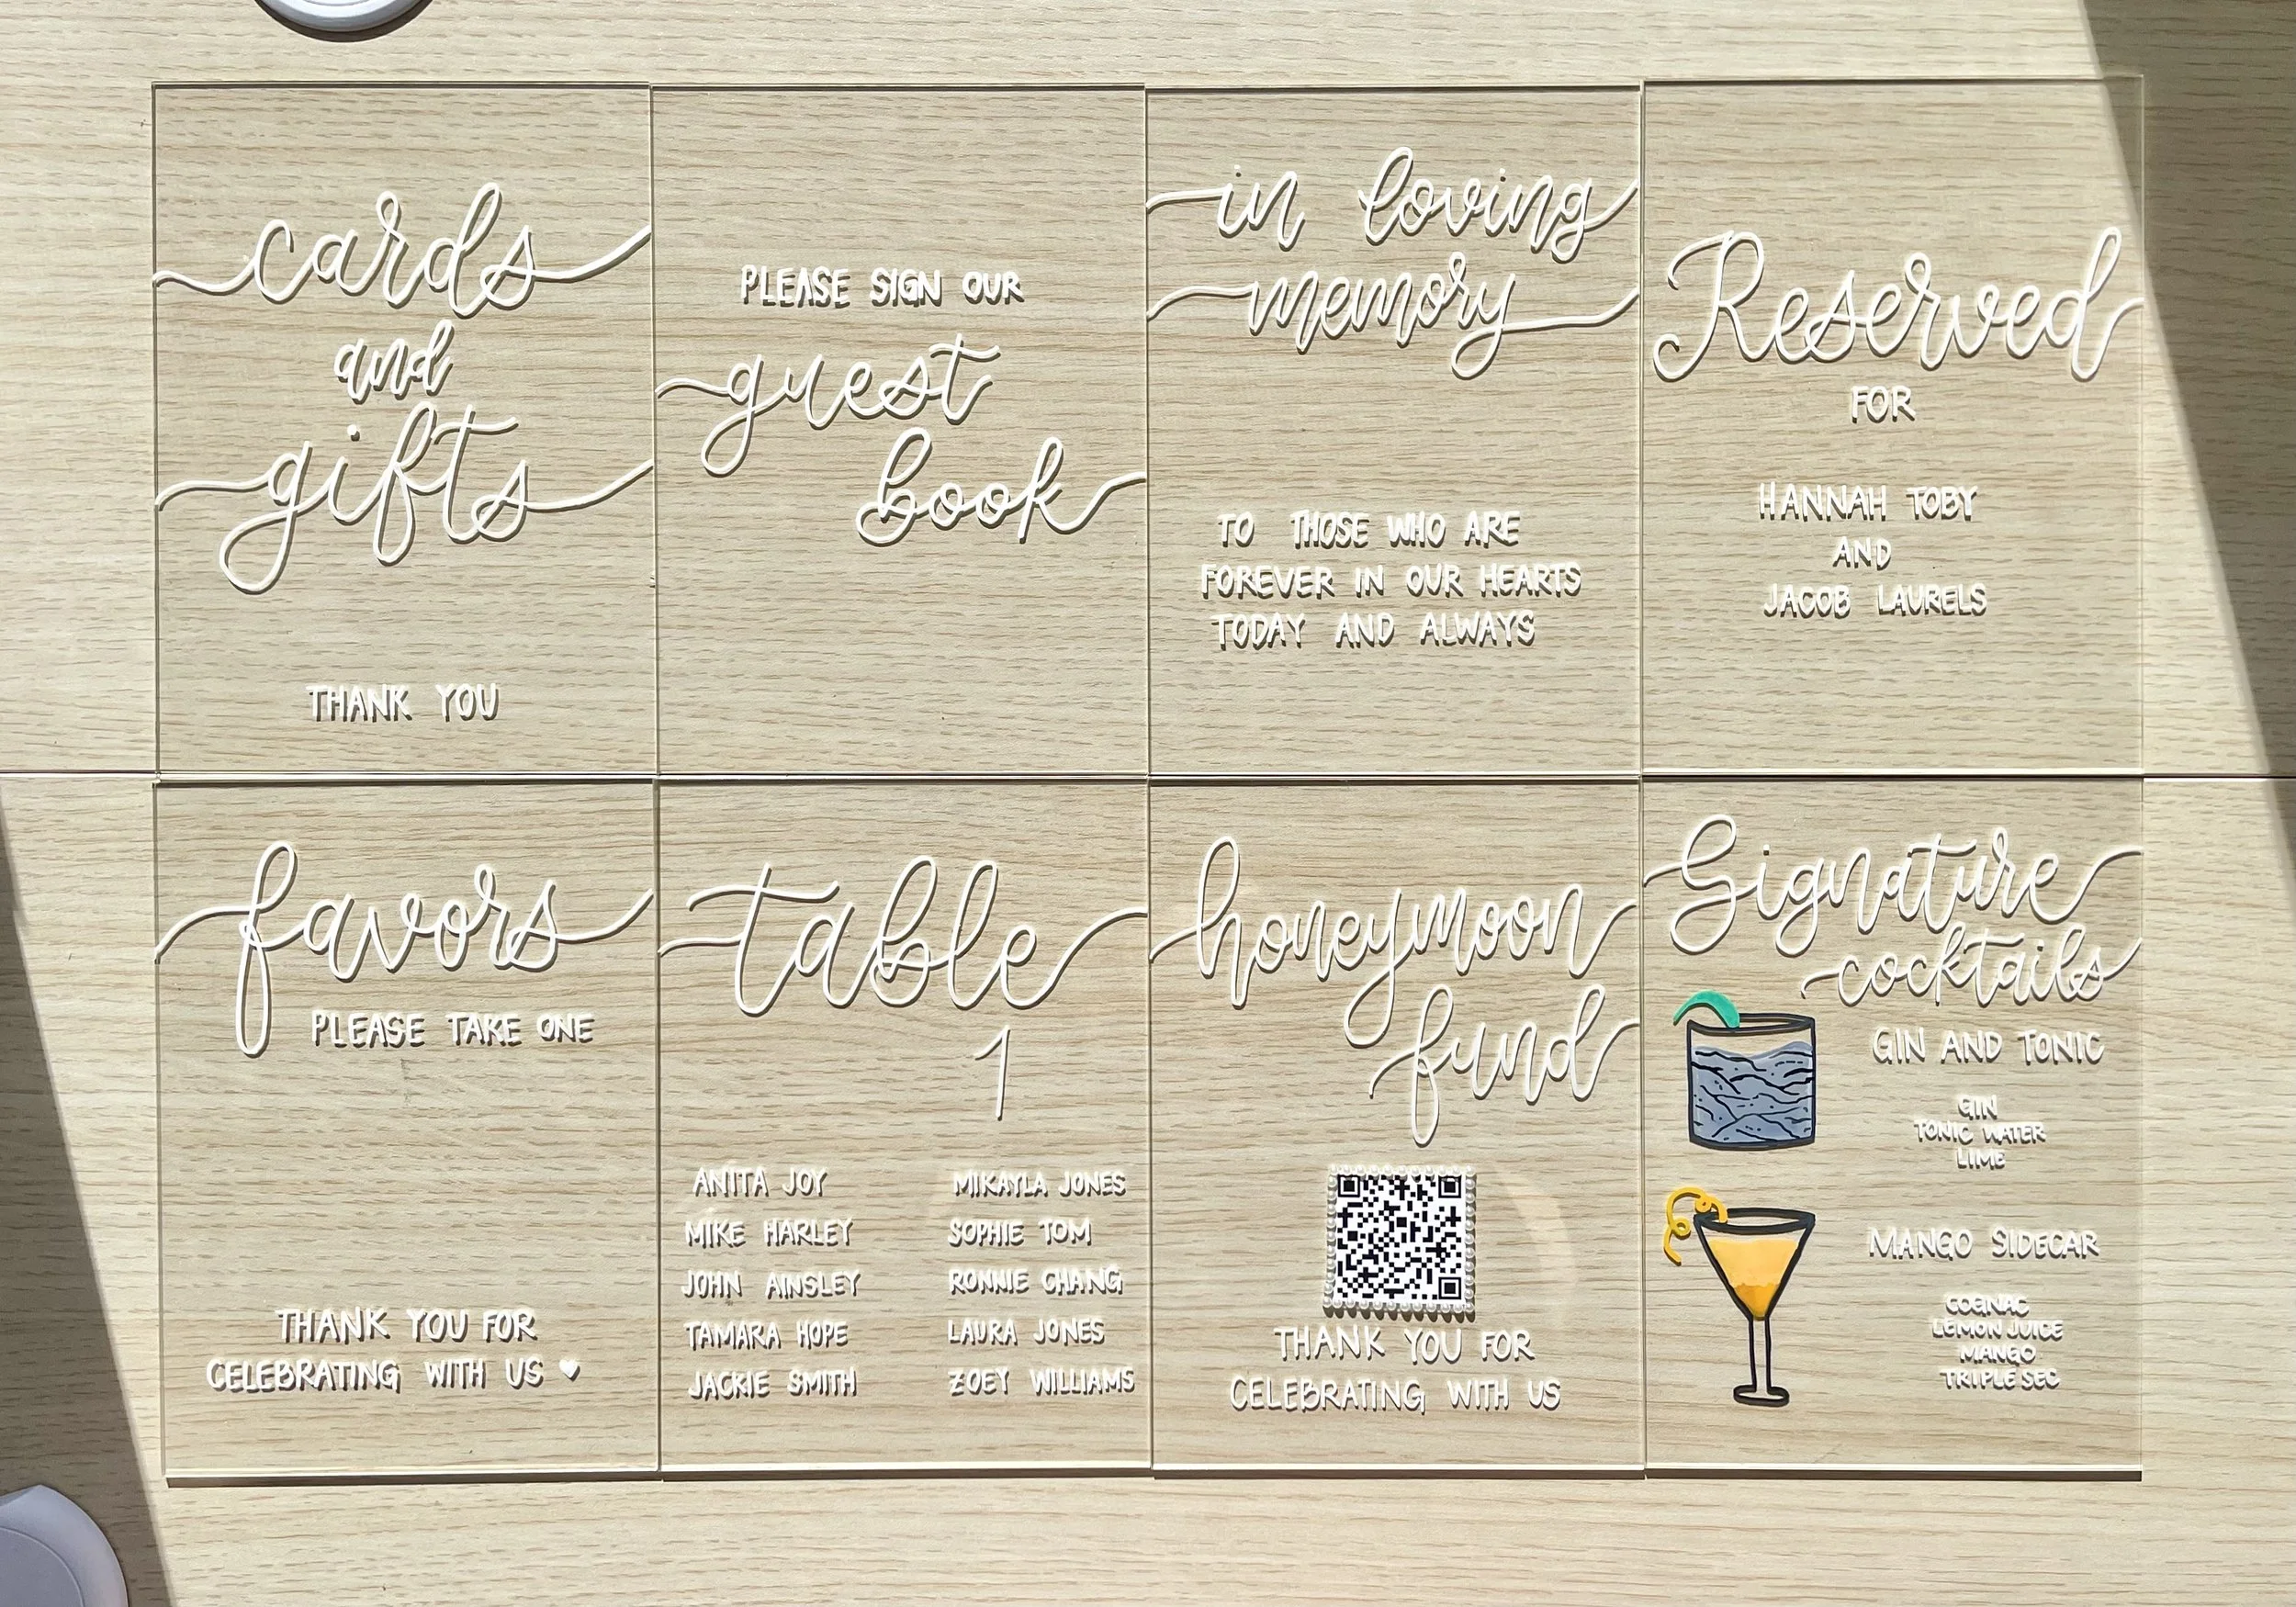 cards
and
gifts
THANK YOU
PLEASE SIGN OUR
guest
book
in loving
memory
TO THOSE WHO ARE
FOREVER IN OUR HEARTS
TODAY AND ALWAYS
Reserved
FOR
HANNAH TOBY
AND
JACOB LAURELS
favors
PLEASE TAKE ONE
THANK YOU FOR
CELEBRATING WITH US
table
1
ANITA JOY
MIKE HARLEY
JOHN AINSLEY
TAMARA HOPE
JACKIE SMITH
MIKAYLA JONES
SOPHIE TOM
RONNIE CHANG
LAURA JONES
ZOEY WILLIAMS
honeymoon
fund
THANK YOU FOR
CELEBRATING WITH US
Signature
cocktails
GIN AND TONIC
GIN
TONIC WATER
LIME
MANGO SIDECAR
COGNAC
LEMON JUICE
MANGO
TRIPLE SEC